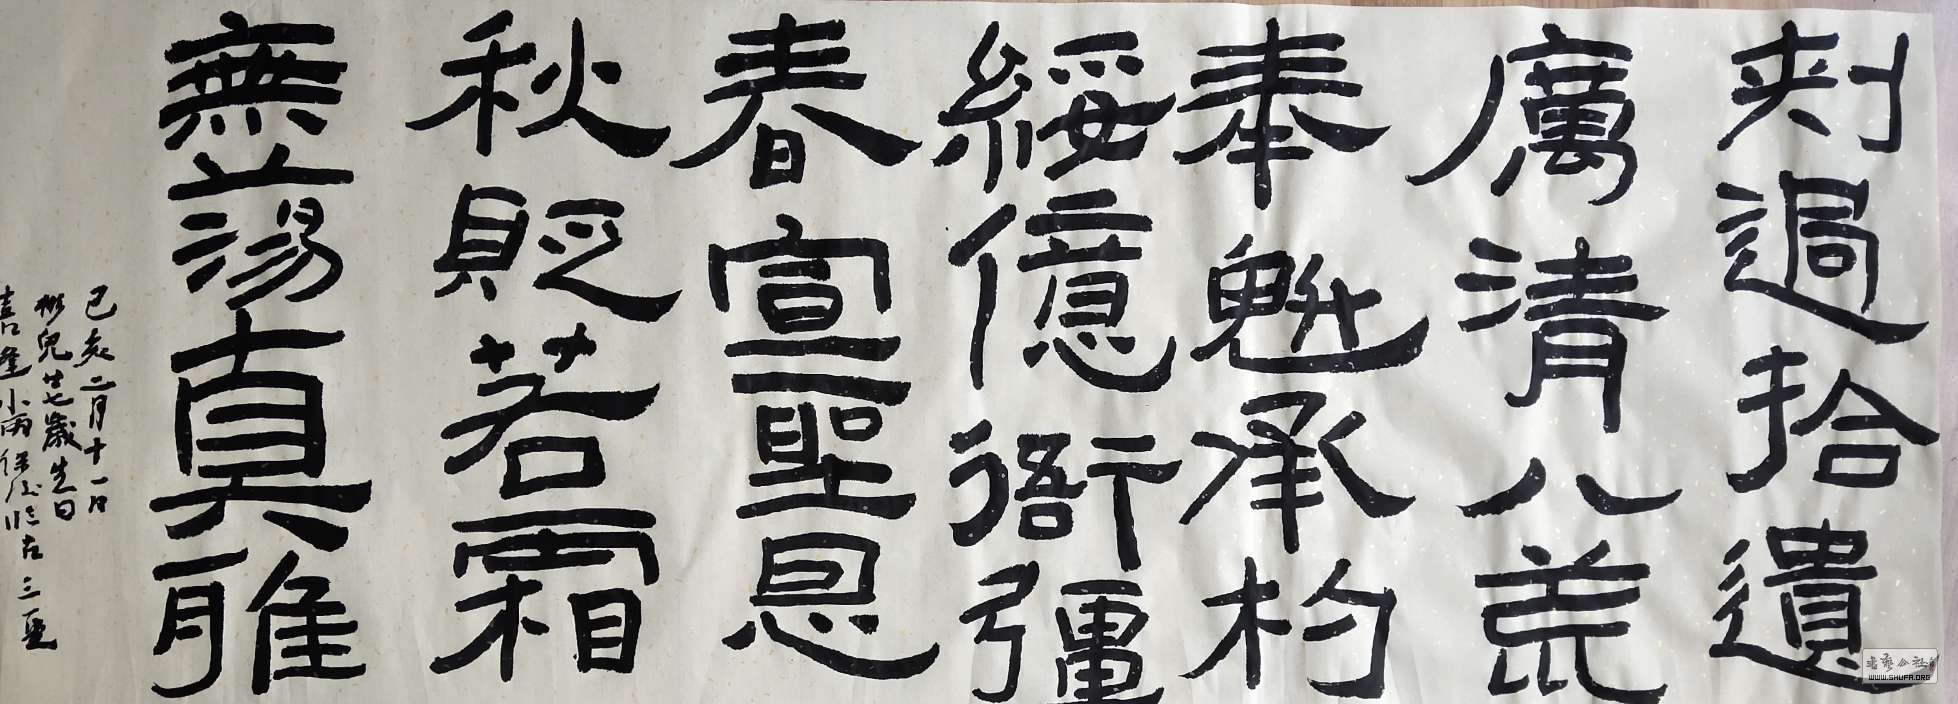 刾過拾遺
厲清八荒
奉魁承杓
綏億衙彊
春宣聖恩
秋貶若霜
無蕩真雅
己亥二月十一日
彬兒廿七歲生日
喜逢小雨
書藝公社
WWW.SHUFA.ORG